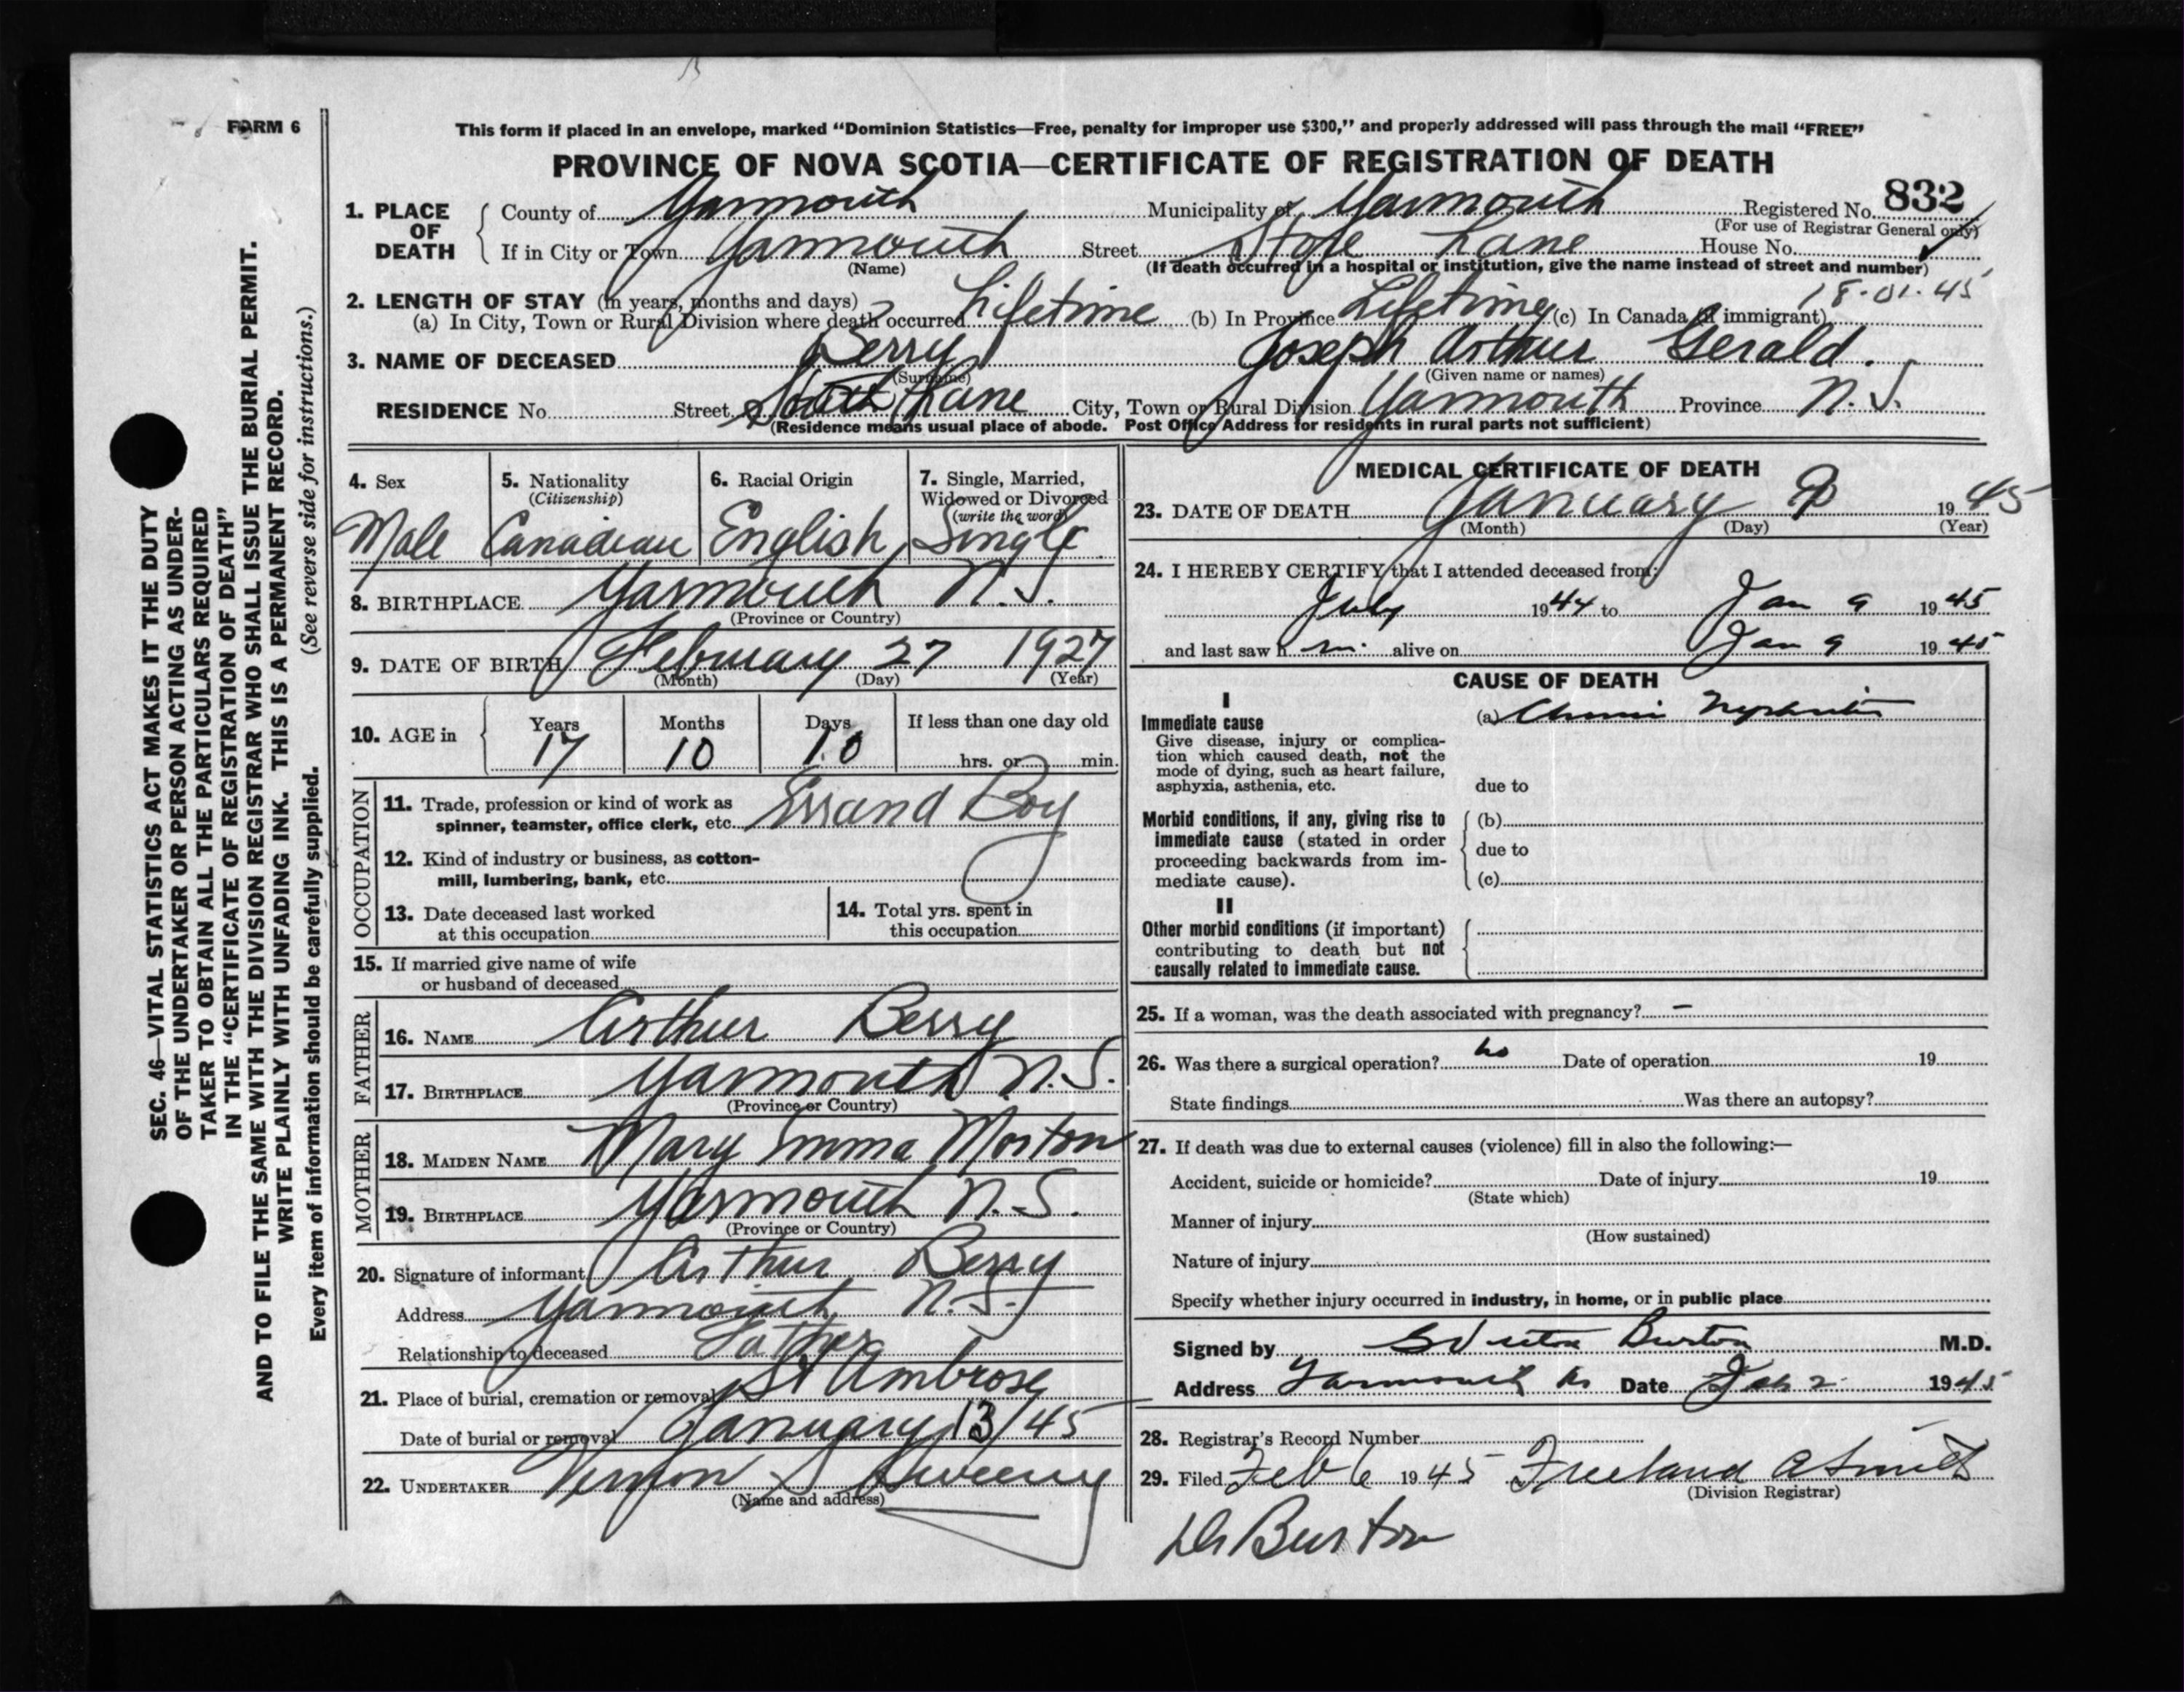 FORM 6
This form if placed in an envelope, marked “Dominion Statistics—Free, penalty for improper use $300,” and properly addressed will pass through the mail “FREE”
PROVINCE OF NOVA SCOTIA—CERTIFICATE OF REGISTRATION OF DEATH
1. PLACE OF DEATH County of Yarmouth Municipality of Yarmouth Registered No. 832
(For use of Registrar General only)
If in City or Town Yarmouth Street Lane House No.
(Name) (If death occurred in a hospital or institution, give the name instead of street and number)
2. LENGTH OF STAY (in years, months and days) 18-01-45
(a) In City, Town or Rural Division where death occurred Lifetime (b) In Province Lifetime (c) In Canada (if immigrant)
3. NAME OF DECEASED Berry Joseph Arthur Gerald.
(Surname) (Given name or names)
RESIDENCE No. Street Lane City, Town or Rural Division Yarmouth Province N.S.
(Residence means usual place of abode. Post Office Address for residents in rural parts not sufficient)
4. Sex 5. Nationality (Citizenship) 6. Racial Origin 7. Single, Married, Widowed or Divorced (write the word)
Male Canadian English Single
8. BIRTHPLACE Yarmouth N.S.
(Province or Country)
9. DATE OF BIRTH February 27 1927
(Month) (Day) (Year)
10. AGE in Years Months Days If less than one day old
17 10 10 hrs. or min.
OCCUPATION
11. Trade, profession or kind of work as
spinner, teamster, office clerk, etc. Errand Boy
12. Kind of industry or business, as cotton-
mill, lumbering, bank, etc.
13. Date deceased last worked
at this occupation
14. Total yrs. spent in
this occupation
15. If married give name of wife
or husband of deceased
FATHER
16. NAME Arthur Berry
17. BIRTHPLACE Yarmouth N.S.
(Province or Country)
MOTHER
18. MAIDEN NAME Mary Emma Morton
19. BIRTHPLACE Yarmouth N.S.
(Province or Country)
20. Signature of informant Arthur Berry
Address Yarmouth N.S.
Relationship to deceased Father
21. Place of burial, cremation or removal St Ambrose
Date of burial or removal January 13/45
22. UNDERTAKER Vernon S Sweeny
(Name and address)
MEDICAL CERTIFICATE OF DEATH
23. DATE OF DEATH January 9 1945
(Month) (Day) (Year)
24. I HEREBY CERTIFY that I attended deceased from:
July 1944 to Jan 9 1945
and last saw h im alive on Jan 9 1945
CAUSE OF DEATH
I
Immediate cause (a) Chronic Nephritis
Give disease, injury or complica-
tion which caused death, not the
mode of dying, such as heart failure,
asphyxia, asthenia, etc. due to
Morbid conditions, if any, giving rise to (b)
immediate cause (stated in order due to
proceeding backwards from im-
mediate cause). (c)
II
Other morbid conditions (if important)
contributing to death but not
causally related to immediate cause.
25. If a woman, was the death associated with pregnancy? —
26. Was there a surgical operation? no Date of operation 19
State findings Was there an autopsy?
27. If death was due to external causes (violence) fill in also the following:—
Accident, suicide or homicide? Date of injury 19
(State which)
Manner of injury
(How sustained)
Nature of injury
Specify whether injury occurred in industry, in home, or in public place
Signed by Burton M.D.
Address Yarmouth NS Date Feb 2 1945
28. Registrar's Record Number
29. Filed Feb 6 1945 Freeland A Smith
(Division Registrar)
Dr Burton
SEC. 46—VITAL STATISTICS ACT MAKES IT THE DUTY
OF THE UNDERTAKER OR PERSON ACTING AS UNDER-
TAKER TO OBTAIN ALL THE PARTICULARS REQUIRED
IN THE “CERTIFICATE OF REGISTRATION OF DEATH”
AND TO FILE THE SAME WITH THE DIVISION REGISTRAR WHO SHALL ISSUE THE BURIAL PERMIT.
WRITE PLAINLY WITH UNFADING INK. THIS IS A PERMANENT RECORD.
Every item of information should be carefully supplied. (See reverse side for instructions.)